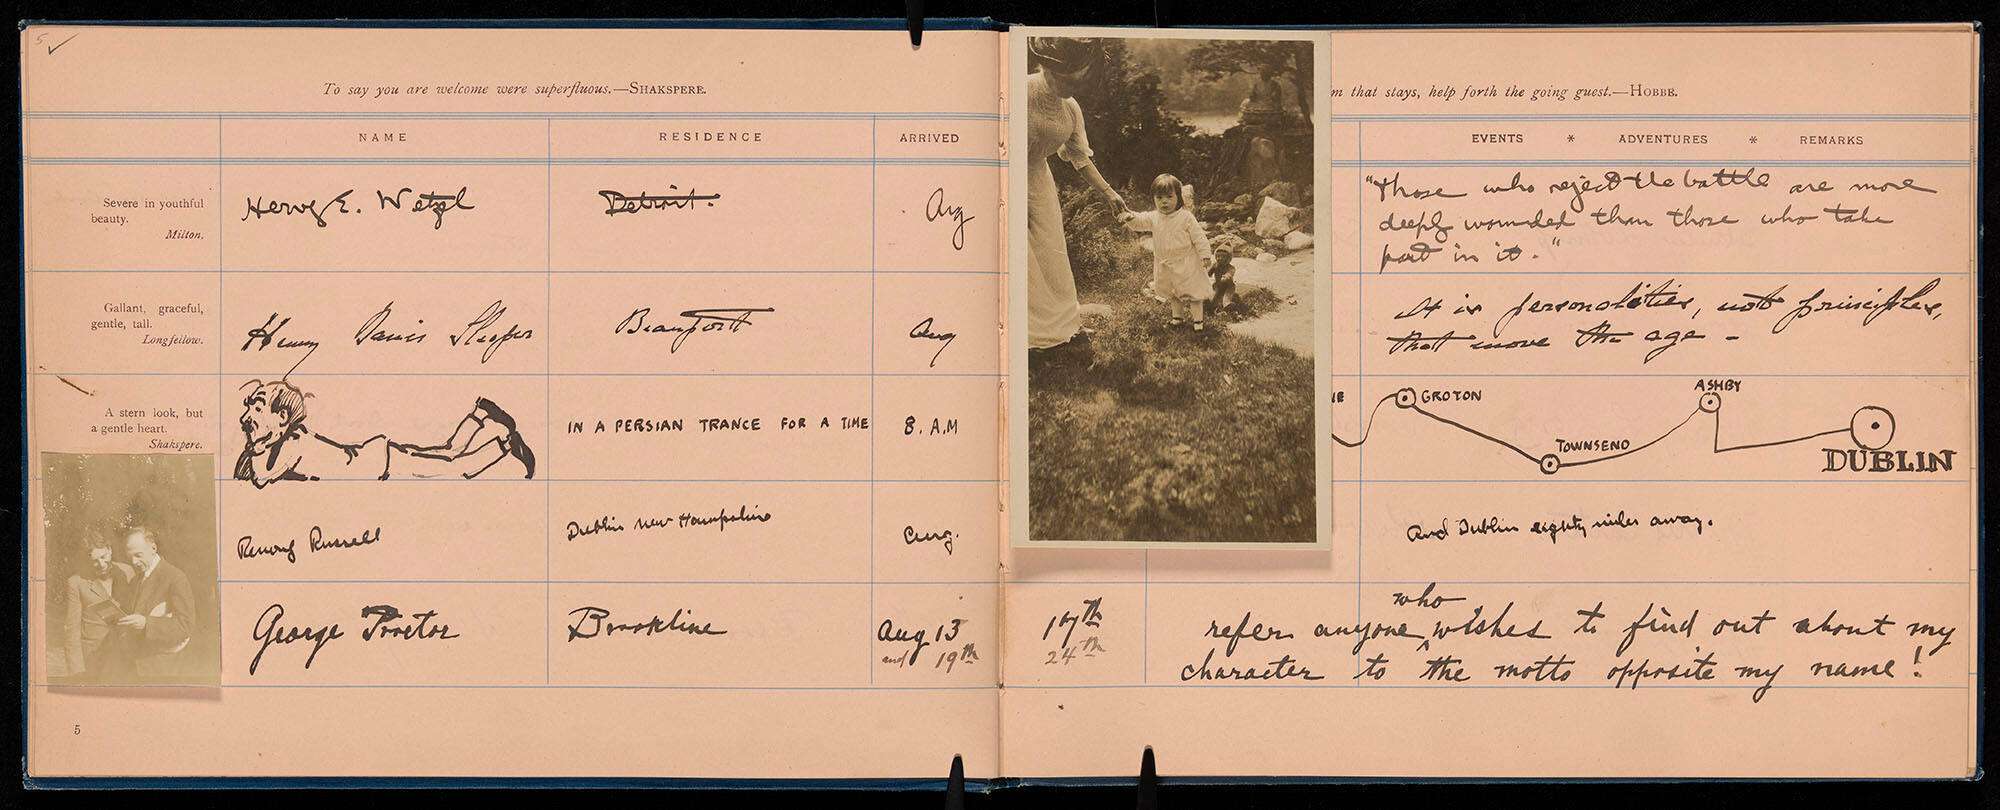 5
To say you are welcome were superfluous.—SHAKSPERE.
NAME
RESIDENCE
ARRIVED
Severe in youthful
beauty.
Milton.
Hervey E. Wetzel
Detroit.
Aug
Gallant, graceful,
gentle, tall.
Longfellow.
Henry Davis Sleeper
Beauport
Aug
A stern look, but
a gentle heart.
Shakspere.
IN A PERSIAN TRANCE FOR A TIME
8. A.M
Russell
Dublin New Hampshire
Aug.
George Proctor
Brookline
Aug 13
and 19th
5
m that stays, help forth the going guest.—HOBBE.
EVENTS * ADVENTURES * REMARKS
"Those who reject the battle are more
deeply wounded than those who take
part in it."
It is personalities, not principles,
that move the age -
GROTON
TOWNSEND
ASHBY
DUBLIN
And Dublin eighty miles away.
17th
24th
who
refer anyone ^ wishes to find out about my
character to the motto opposite my name!